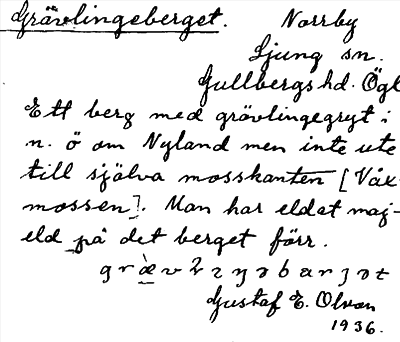 Grävlingeberget. Norrby
Ljung sn.
Gullbergs hd. Ögl
Ett berg med grävlingegryt i
n. ö om Nyland men inte ute
till själva mosskanten [Våx-
mossen]. Man har eldat maj-
eld på det berget förr.
Gustaf E. Olvon
1936.